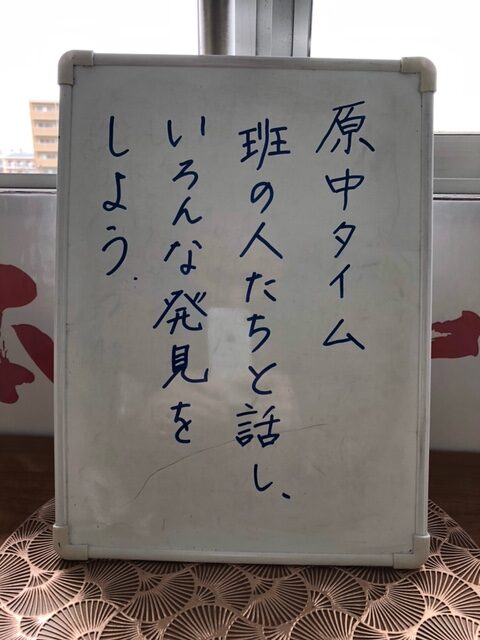 原中タイム
班の人たちと話し、
いろんな発見を
しよう.